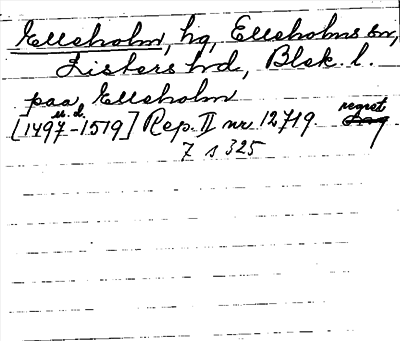 Elleholm, hg, Elleholms sn,
Listers hd, Blek. l.
paa Elleholm
u. d. regest
[1497-1519] Rep. II nr 12719.
7 s 325